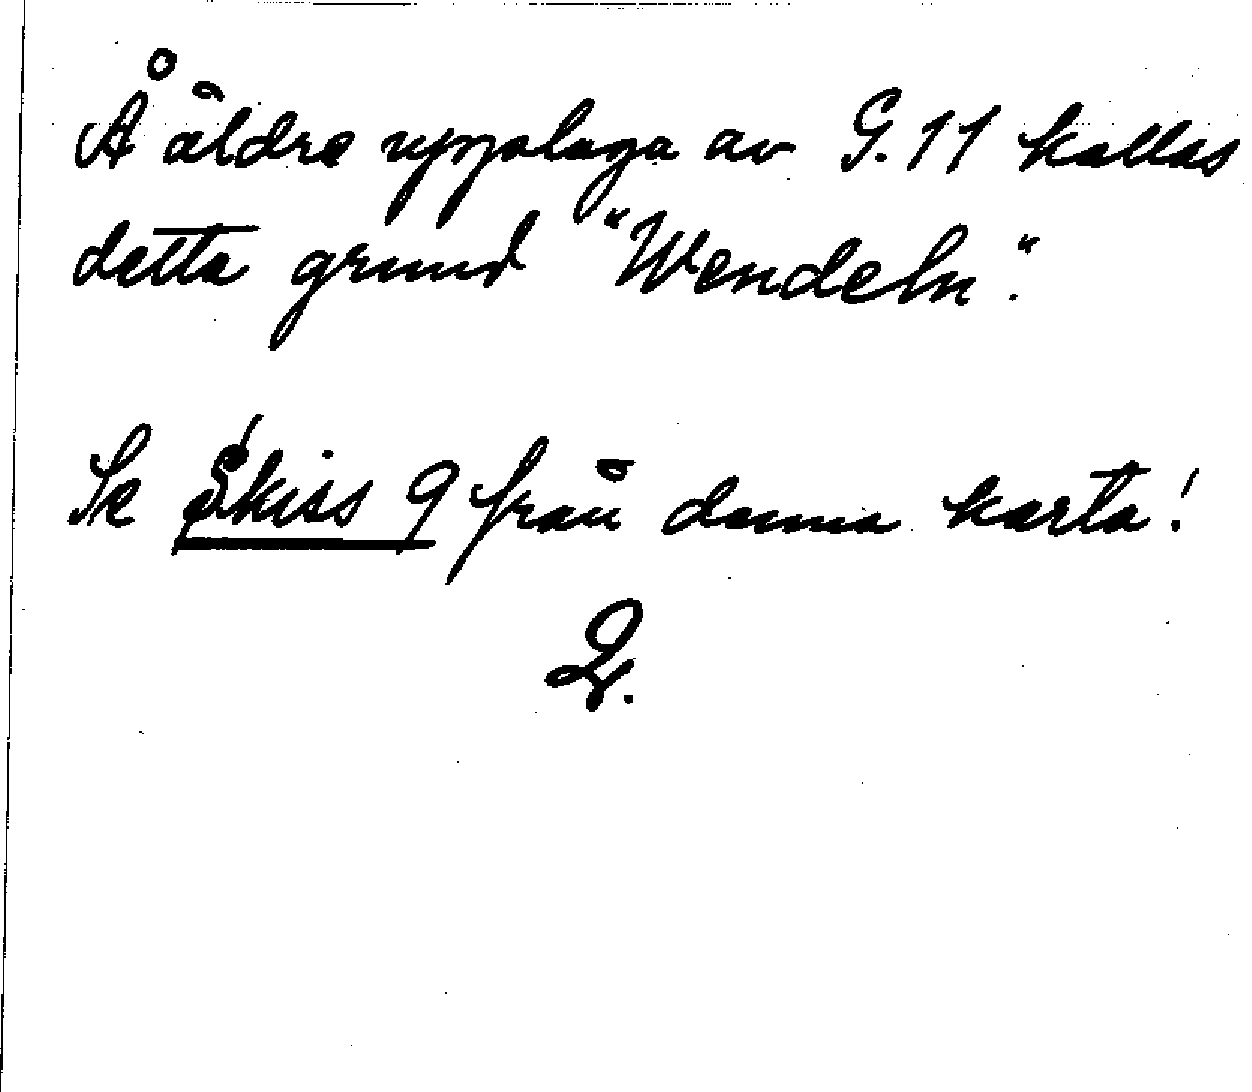 Å äldre upplaga av G.11 kallas
detta grund "Wendeln".
Se Skiss 9 från denna karta!
2.